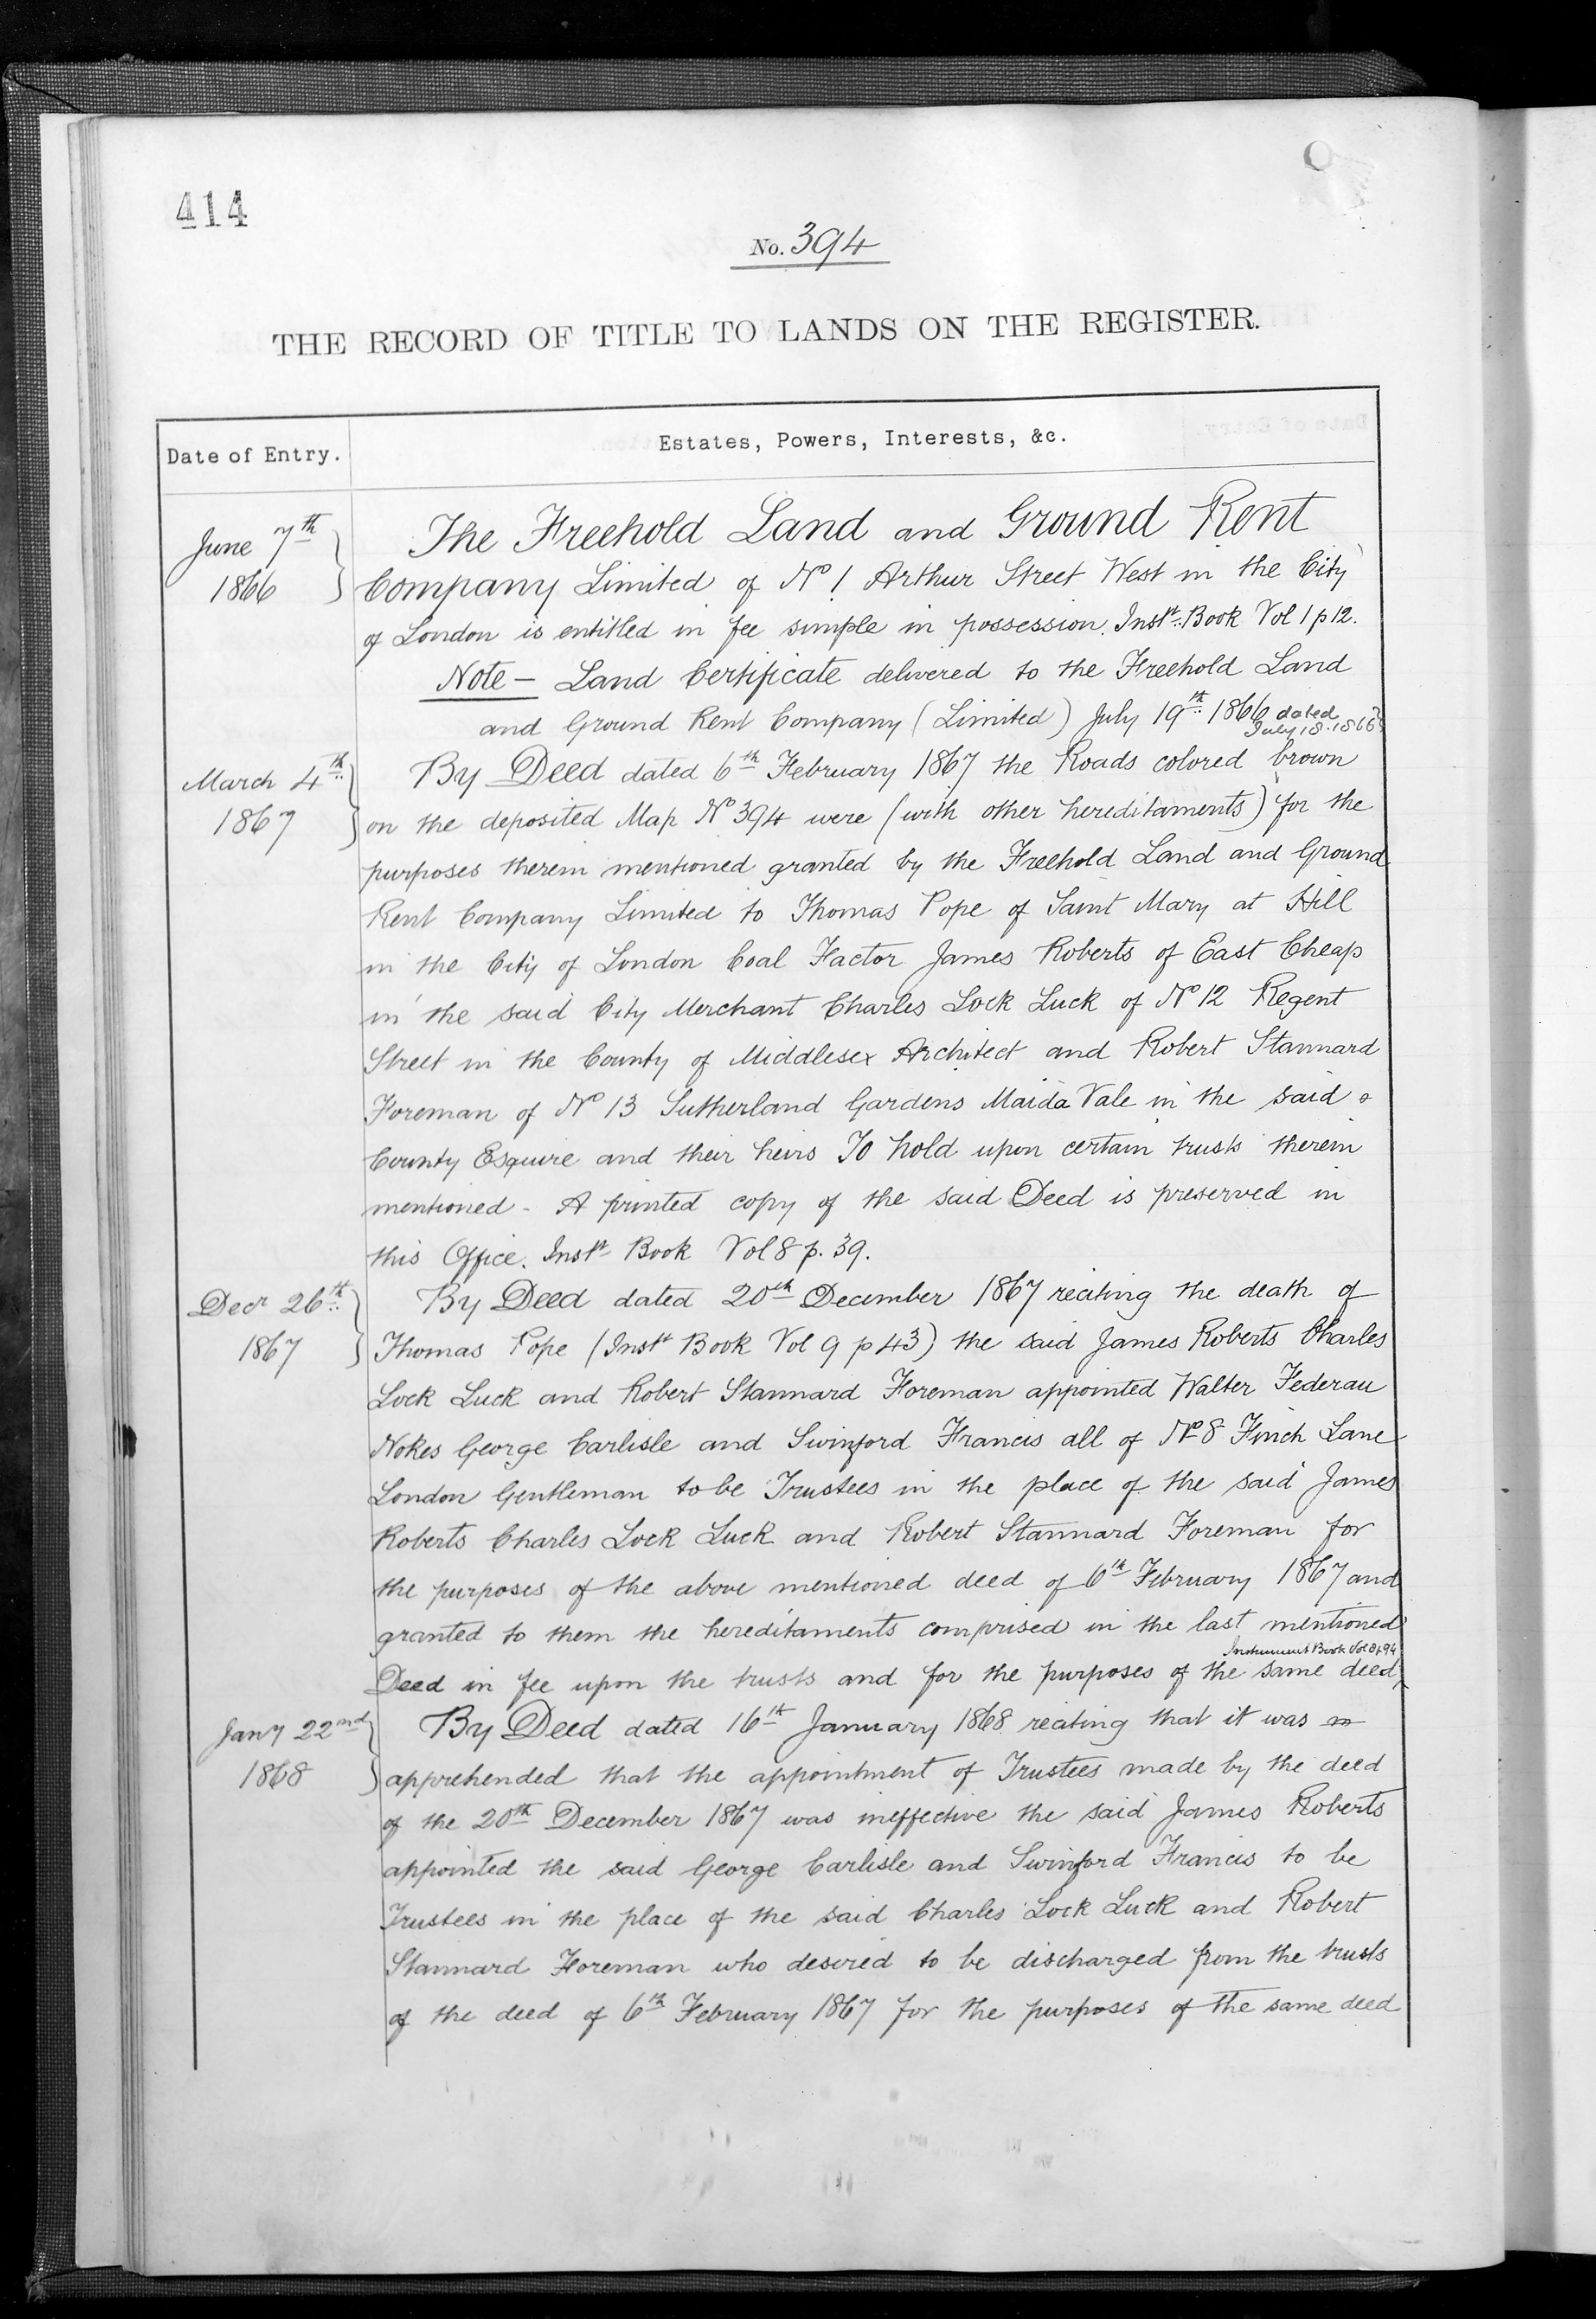 414
No. 394
THE RECORD OF TITLE TO LANDS ON THE REGISTER.
Date of Entry.
Estates, Powers, Interests, &c.
June 7th
1866
The Freehold Land and Ground Rent
Company Limited of No 1 Arthur Street West in the City
of London is entitled in fee simple in possession. Instt. Book Vol 1 p 12.
Note - Land Certificate delivered to the Freehold Land
and Ground Rent Company (Limited) July 19th 1866 dated
July 18. 1866
March 4th
1867
By Deed dated 6th February 1867 the Roads colored brown
on the deposited Map No 394 were (with other hereditaments) for the
purposes therein mentioned granted by the Freehold Land and Ground
Rent Company Limited to Thomas Pope of Saint Mary at Hill
in the City of London Coal Factor James Roberts of East Cheap
in the said City Merchant Charles Lock Luck of No 12 Regent
Street in the County of Middlesex Architect and Robert Stannard
Foreman of No 13 Sutherland Gardens Maida Vale in the said
County Esquire and their heirs To hold upon certain trusts therein
mentioned - A printed copy of the said Deed is preserved in
this Office. Instt Book Vol 8 p. 39.
Decr 26th
1867
By Deed dated 20th December 1867 reciting the death of
Thomas Pope (Instt Book Vol 9 p 43) the said James Roberts Charles
Lock Luck and Robert Stannard Foreman appointed Walter Federau
Nokes George Carlisle and Swinford Francis all of No 8 Finch Lane
London Gentleman to be Trustees in the place of the said James
Roberts Charles Lock Luck and Robert Stannard Foreman for
the purposes of the above mentioned deed of 6th February 1867 and
granted to them the hereditaments comprised in the last mentioned
Instrument Book Vol 8 p 94
Deed in fee upon the trusts and for the purposes of the same deed
Jany 22nd
1868
By Deed dated 16th January 1868 reciting that it was
apprehended that the appointment of Trustees made by the deed
of the 20th December 1867 was ineffective the said James Roberts
appointed the said George Carlisle and Swinford Francis to be
Trustees in the place of the said Charles Lock Luck and Robert
Stannard Foreman who desired to be discharged from the trusts
of the deed of 6th February 1867 for the purposes of the same deed